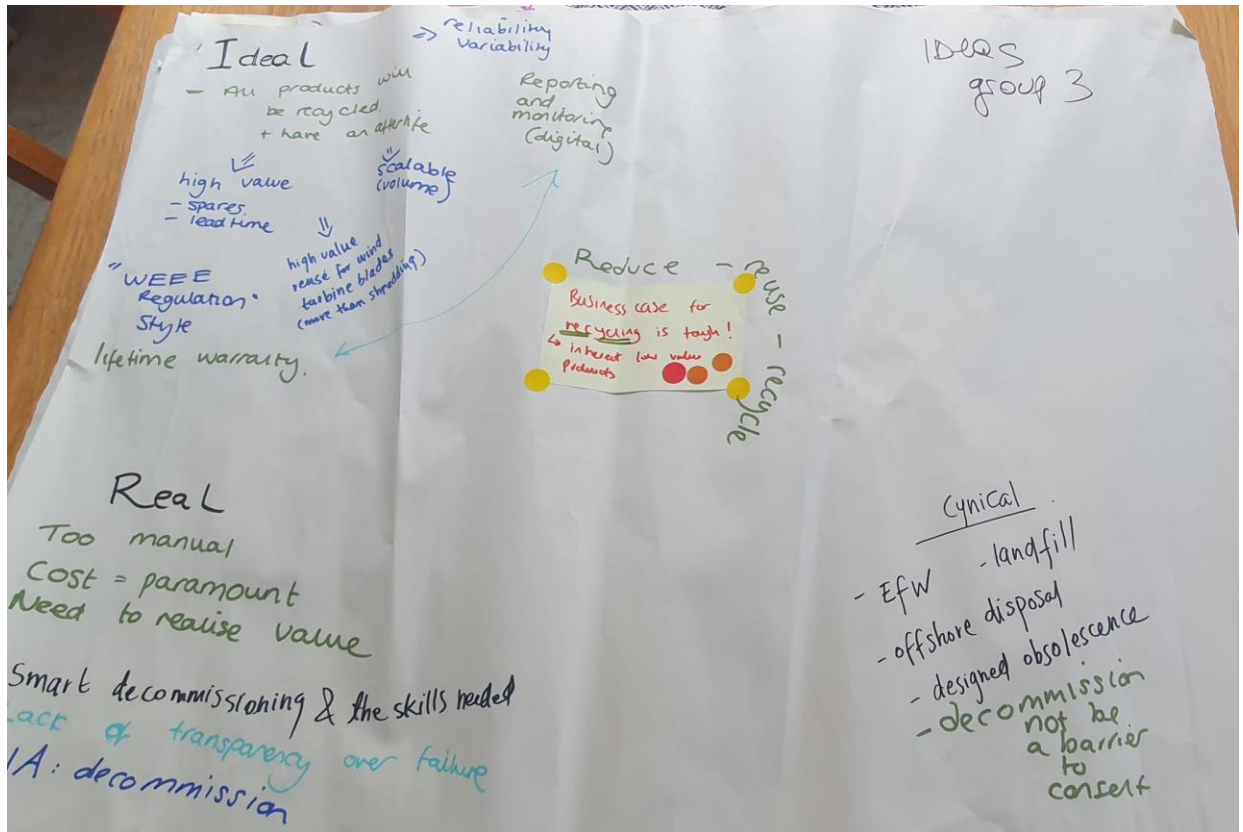 Ideal
- All products will
be recycled.
+ have an afterlife
=> reliability
variability
Reporting
and
monitoring
(digital)
high value
- spares.
- lead time
scalable
(volume)
high value
reuse for wind
turbine blades
(more than shredding)
"WEEE
Regulation"
Style
lifetime warralty.
IDEAS
group 3
Reduce - reuse - recycle
Business case for
recycling is tough!
↳ inherent low value
products
Real
Too manual
Cost = paramount
Need to realise value
Smart decommissioning & the skills needed
Lack of transparency over failure
IA: decommission
Cynical
- EfW - landfill
- offshore disposal
- designed obsolescence
- decommission
not be
a barrier
to
consent